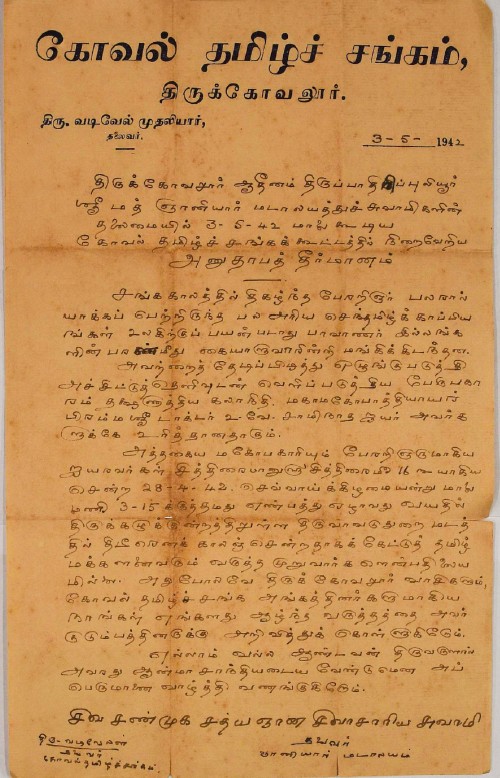 கோவல் தமிழ்ச் சங்கம்,
திருக்கோவலூர்.
திரு. வடிவேல் முதலியார்,
தலைவர்.
3-5-1942
திருக்கோவலூர் ஆதீனம் திருப்பாதிரிப்புலியூர்
ஸ்ரீமத் ஞானியார் மடாலயத்துச் சுவாமிகளின்
தலைமையில் 3-5-42 மாலை கூடிய
கோவல் தமிழ்ச் சங்கக் கூட்டத்தில் நிறைவேறிய
அனுதாபத் தீர்மானம்
சங்க காலத்தில் திகழ்ந்த பேரறிஞர் பலரால்
யாக்கப் பெற்றிருந்த பல அரிய செந்தமிழ்க் காப்பிய
ங்கள் உலகிற்குப் பயன்படாது பாவாணர் இல்லங்க
ளின் பரண்மீது கையாளுவாரின்றி மங்கிக் கிடந்தன.
அவற்றைத் தேடிப்பிடித்து ஒழுங்கு படுத்தி
அச்சிட்டுத் தெளிவுடன் வெளிப்படுத்திய பேருபகா
ரம் தக்ஷிணாத்திய கலாநிதி, மகாமகோபாத்தியாயர்
பிரம்மஸ்ரீ டாக்டர் உ.வே. சாமிநாத ஐயர் அவர்க
ளுக்கே உரித்தானதாகும்.
அத்தகைய மகோபகாரியும் பேரறிஞருமாகிய
ஐயரவர்கள் சித்திரபானு சித்திரைமீ 16உ யாகிய
சென்ற 28-4-42. செவ்வாய்க்கிழமையன்று மாலை
மணி 3-15க்குத் தமது எண்பத்து ஏழாவது வயதில்
திருக்கழுக்குன்றத்திலுள்ள திருவாவடுதுறை மடத்
தில் திடீரெனக் காலஞ்சென்றதாகக் கேட்டுத் தமிழ்
மக்களனைவரும் வருத்தமுறுவார்களென்பதில் ஐய
மில்லை. அதுபோலவே திருக்கோவலூர் வாசிகளும்,
கோவல் தமிழ்ச் சங்க அங்கத்தினர்களுமாகிய
நாங்கள் எங்களது ஆழ்ந்த வருத்தத்தை அவர்
குடும்பத்தினருக்கு அறிவித்துக் கொள்ளுகிறோம்.
எல்லாம் வல்ல ஆண்டவன் திருவருளால்
அவரது ஆன்மா சாந்தியடைய வேண்டுமென அப்
பெருமானை வாழ்த்தி வணங்குகிறோம்.
சிவ சண்முக சத்ய ஞான சிவாசாரிய சுவாமி
தலைவர்
ஞானியார் மடாலயம்
தலைவர்
கோவல் தமிழ்ச்சங்கம்.